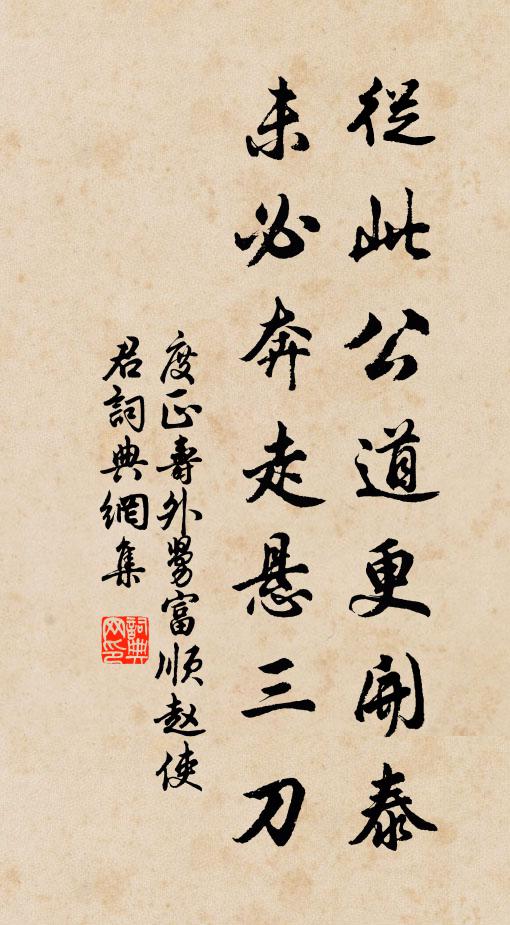 從此公道更開泰
未必奔走懸三刀
度正壽外舅富順趙使
君詞典網集
詞典
网印